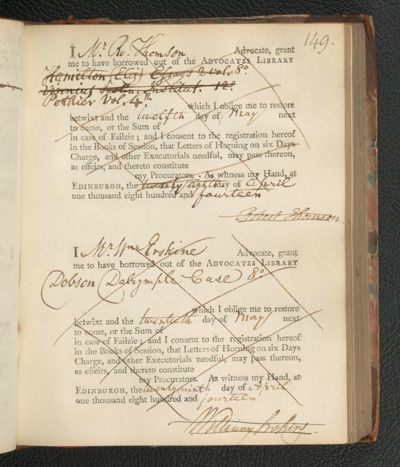 149.
I Mr. Ro. Thomson Advocate, grant
me to have borrowed out of the ADVOCATES LIBRARY
Hamilton (Eliz) Essays 2 vol. 8º.
Institut. 12º
Pothier Vol. 4.th
which I oblige me to restore
betwixt and the twelfth day of May next
to come, or the Sum of
in case of Failzie; and I consent to the registration hereof
in the Books of Session, that Letters of Horning on six Days
Charge, and other Executorials needful, may pass thereon,
as effeirs, and thereto constitute
my Procurators. As witness my Hand, at
EDINBURGH, the twenty eighth day of April
one thousand eight hundred and fourteen
Robert Thomson
I Mr. Wm Erskine Advocate, grant
me to have borrowed out of the ADVOCATES LIBRARY
Dobson Dalrymple Case 8º
which I oblige me to restore
betwixt and the twentieth day of May next
to come, or the Sum of
in case of Failzie; and I consent to the registration hereof
in the Books of Session, that Letters of Horning on six Days
Charge, and other Executorials needful, may pass thereon,
as effeirs, and thereto constitute
my Procurators. As witness my Hand, at
EDINBURGH, the twenty ninth day of April
one thousand eight hundred and fourteen
Erskine.